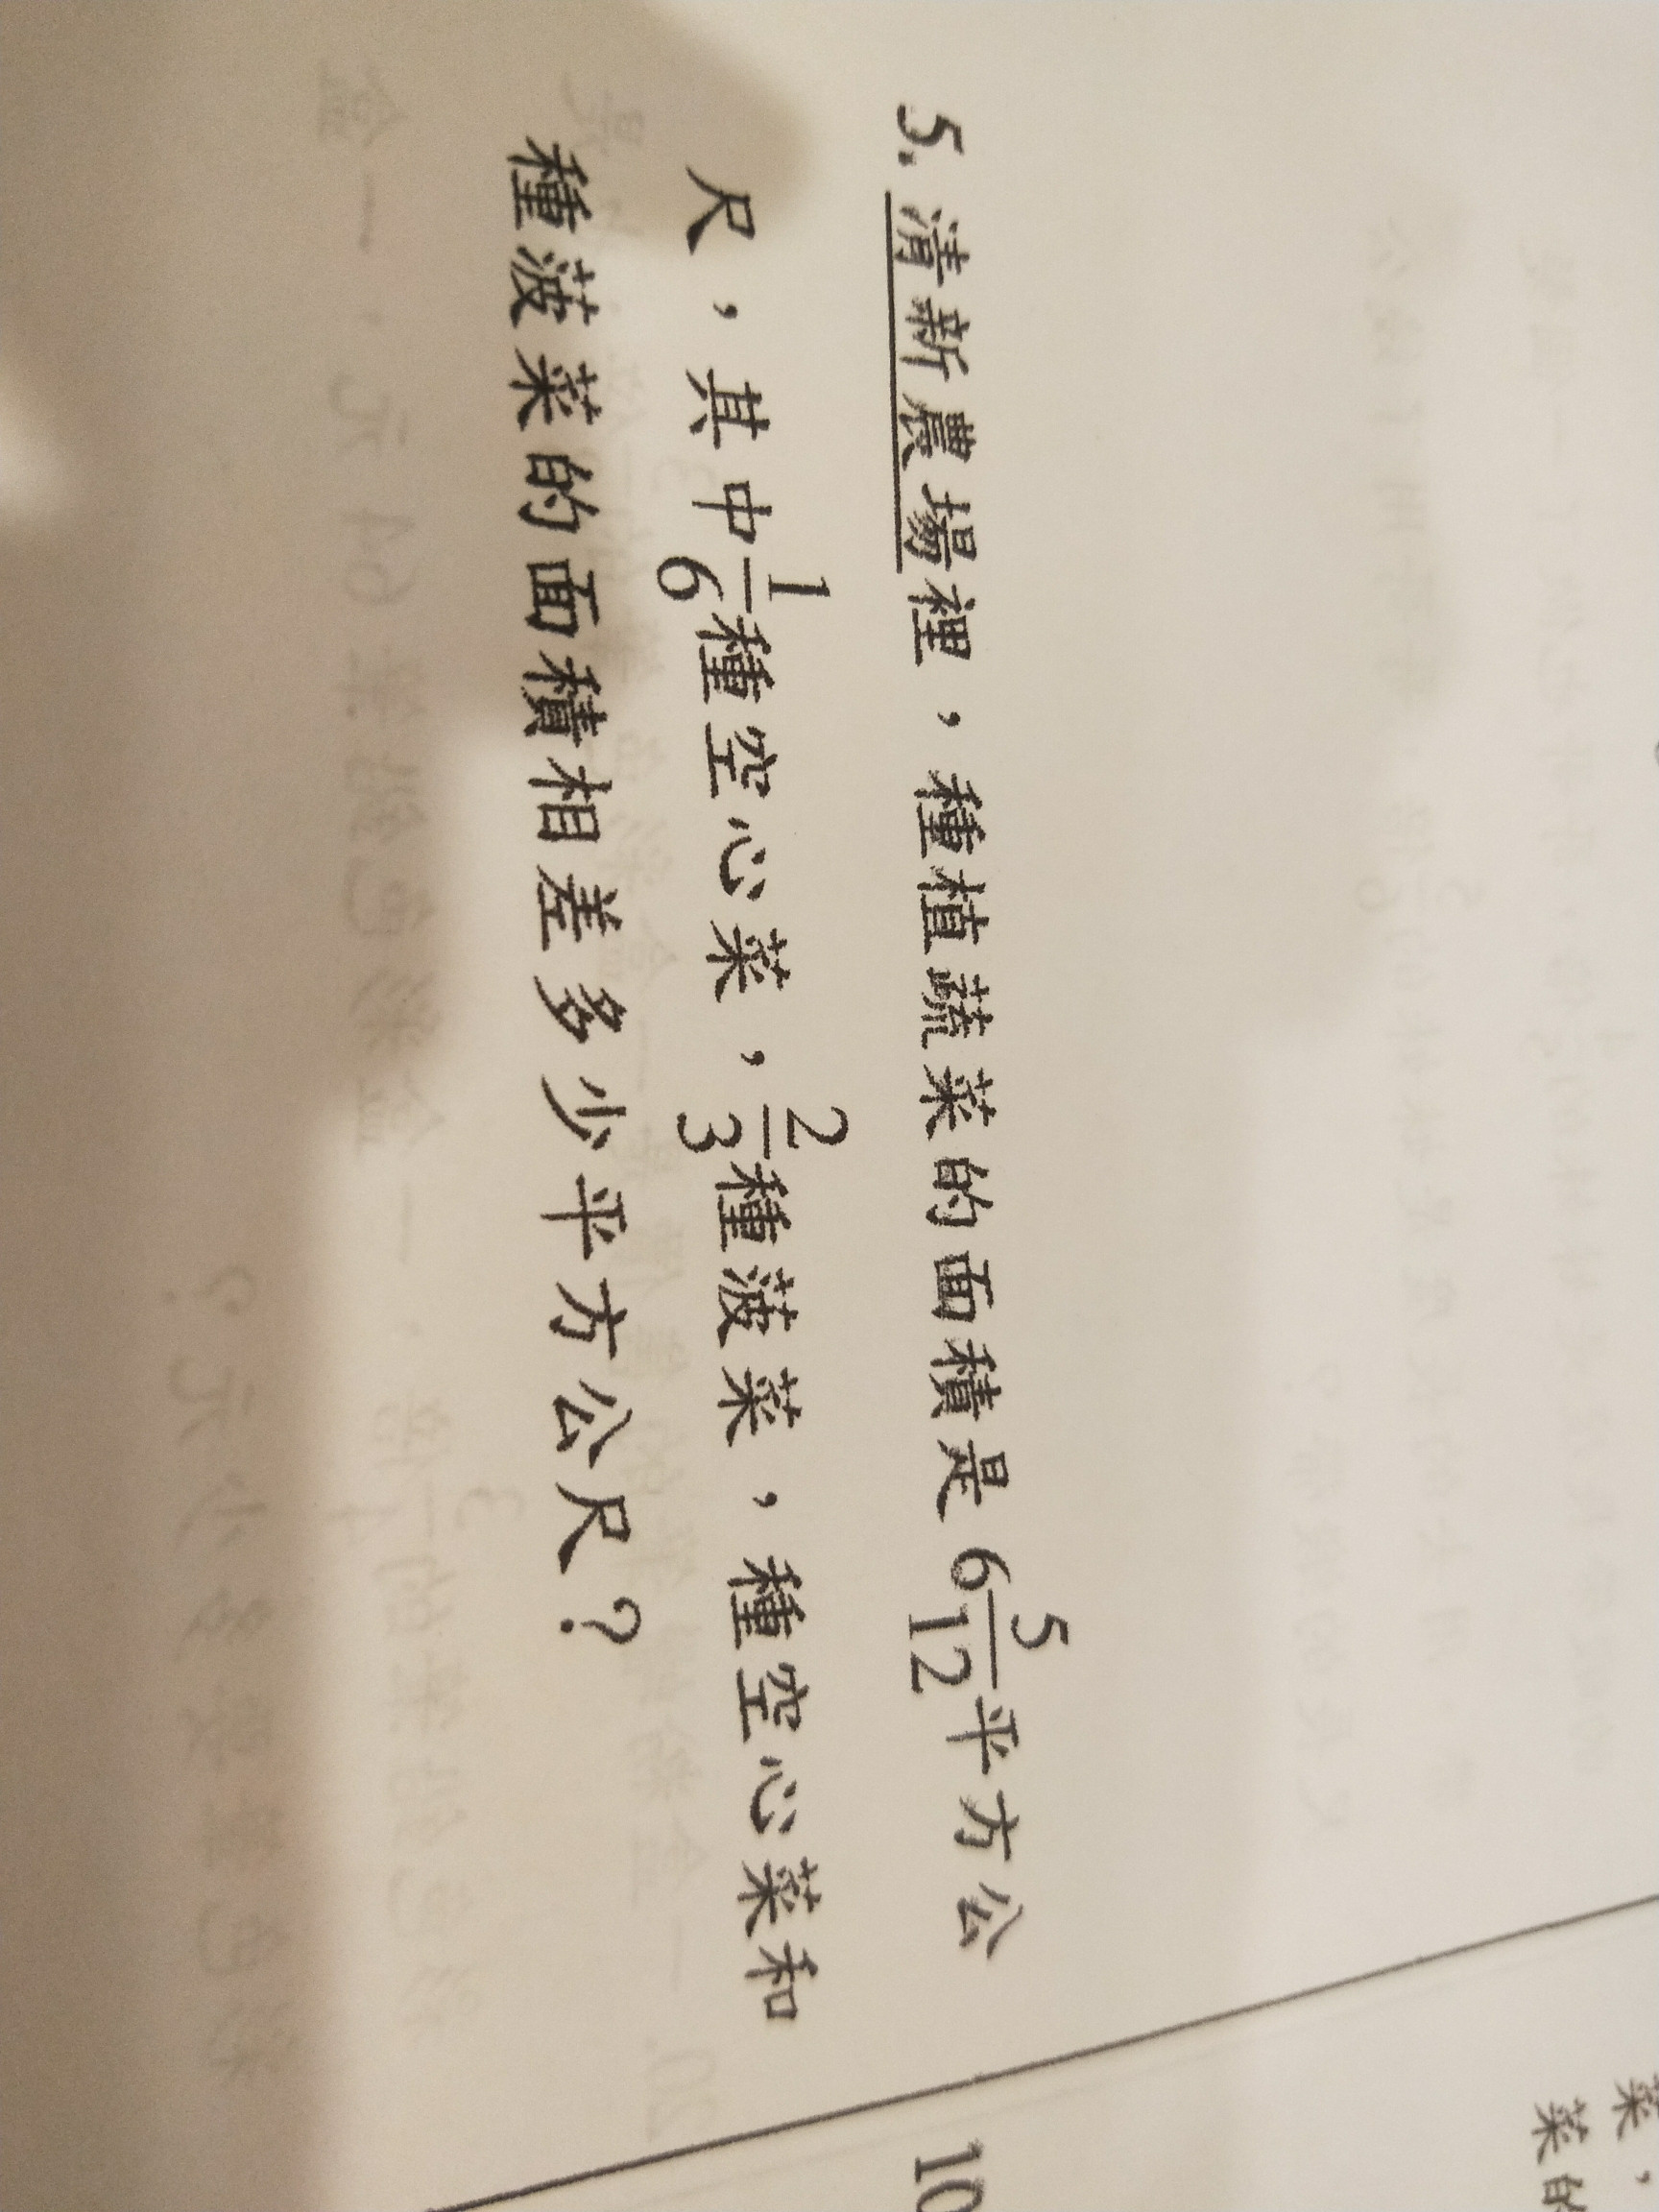 5. 清新農場裡，種植蔬菜的面積是6 5/12平方公
尺，其中1/6種空心菜，2/3種菠菜，種空心菜和
種菠菜的面積相差多少平方公尺？
10
菜，
菜的